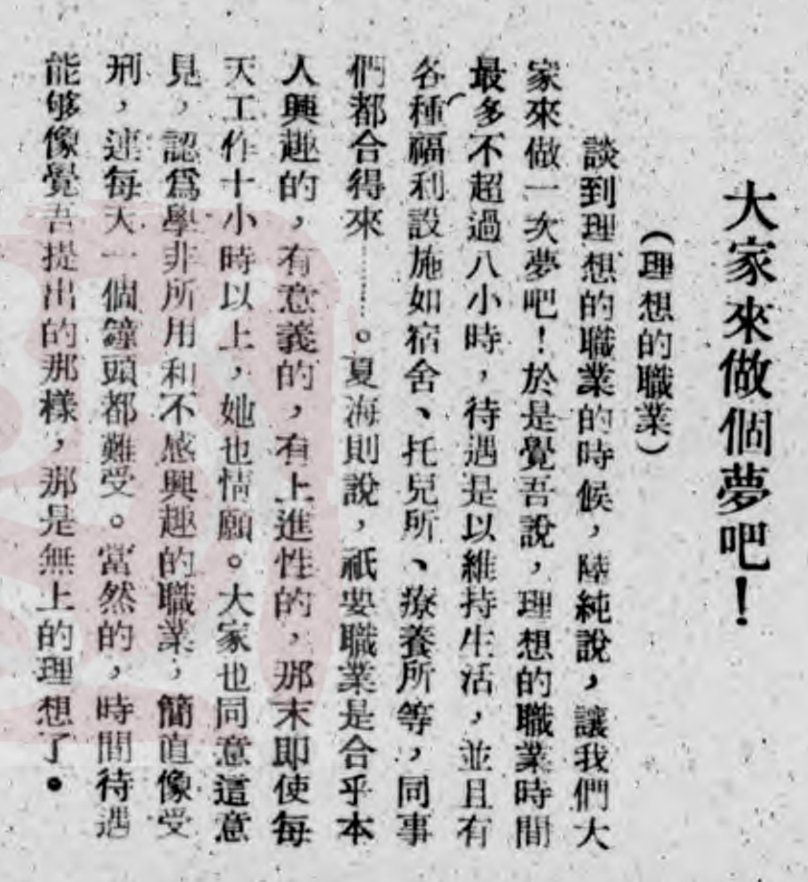 大家來做個夢吧！
（理想的職業）
談到理想的職業的時候，陸純說，讓我們大
家來做一次夢吧！於是覺吾說，理想的職業時間
最多不超過八小時，待遇是以維持生活，並且有
各種福利設施如宿舍、托兒所、療養所等，同事
們都合得來……。夏海則說，祇要職業是合乎本
人興趣的，有意義的，有上進性的，那末即使每
天工作十小時以上，她也情願。大家也同意這意
見，認爲學非所用和不感興趣的職業，簡直像受
刑，連每天一個鐘頭都難受。當然的，時間待遇
能够像覺吾提出的那樣，那是無上的理想了。